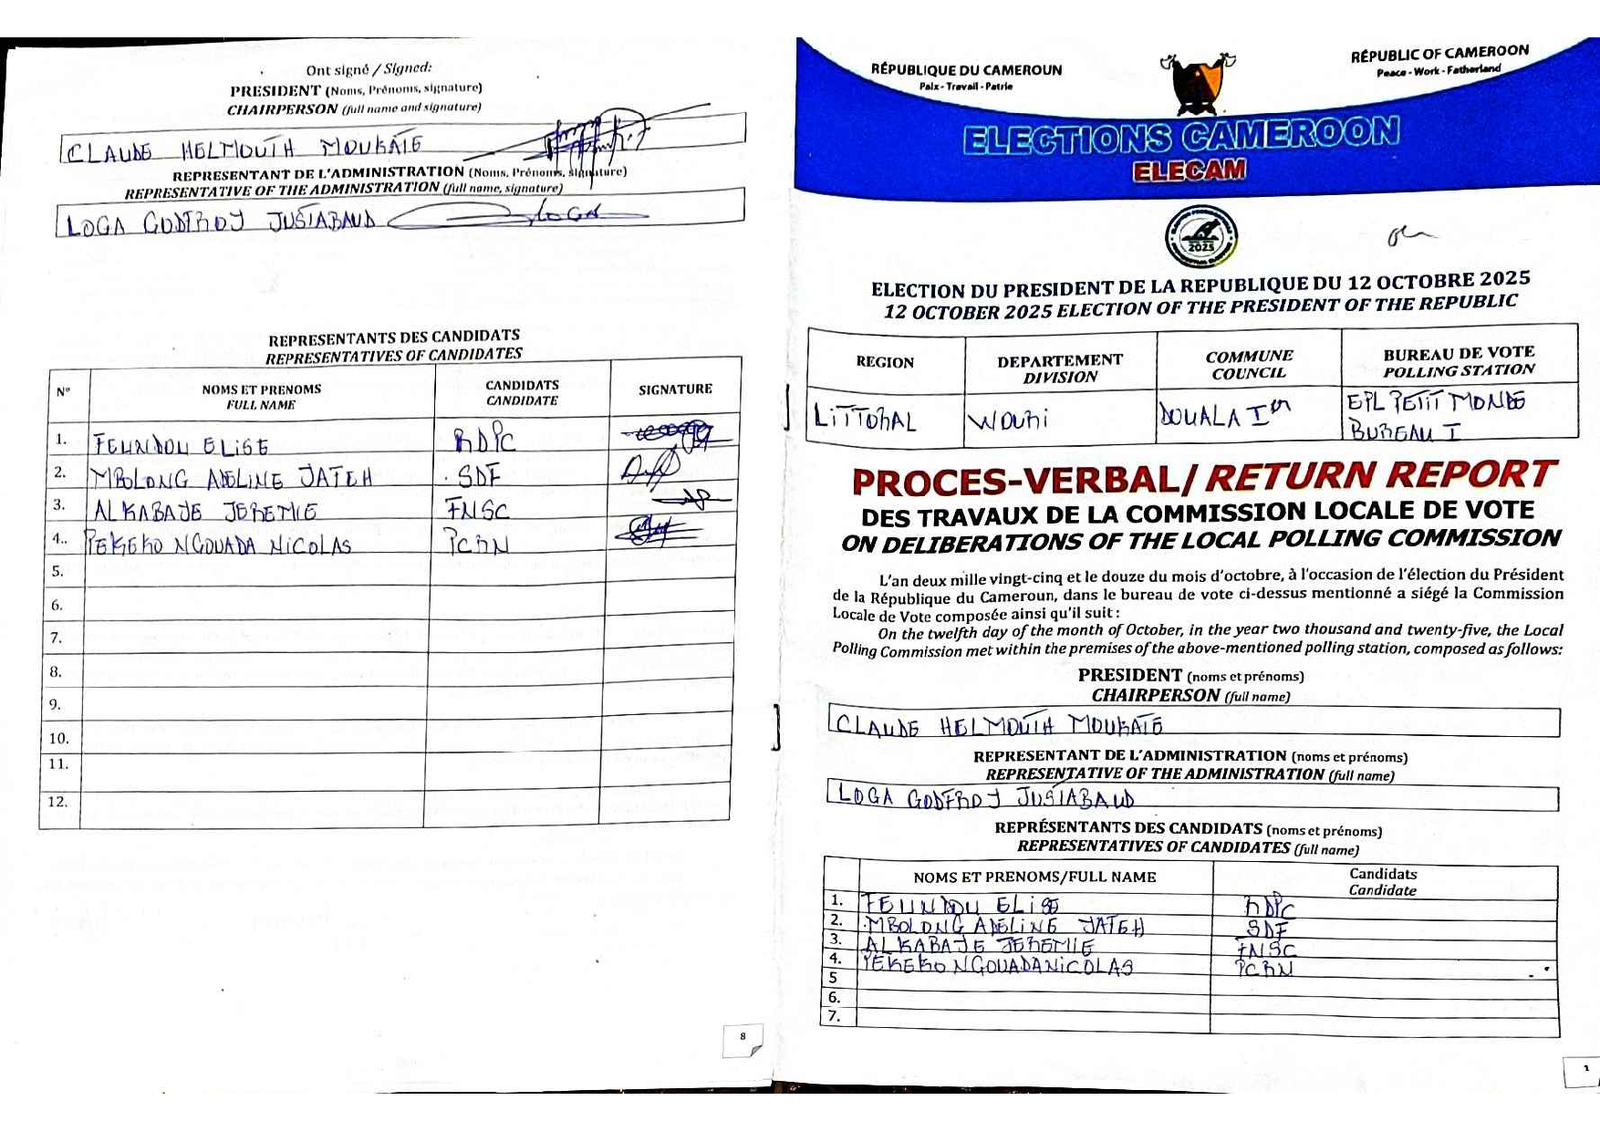 Ont signé / Signed:
PRESIDENT (Noms, Prénoms, signature)
CHAIRPERSON (full name and signature)
CLAUDE HELMOUTH MOUKATE
REPRESENTANT DE L'ADMINISTRATION (Noms, Prénoms, signature)
REPRESENTATIVE OF THE ADMINISTRATION (full name, signature)
LOGA GODFROY JUSTABAUD LOGA
REPRESENTANTS DES CANDIDATS
REPRESENTATIVES OF CANDIDATES
N° NOMS ET PRENOMS FULL NAME CANDIDATS CANDIDATE SIGNATURE
1. FEUNDOU ELISE RDPC
2. MBOLONG ADELINE JATEH SDF
3. ALKABAJE JEREMIE FNSC
4.. PEKEKO NGOUADA NICOLAS PCRN
5.
6.
7.
8.
9.
10.
11.
12.
8
RÉPUBLIQUE DU CAMEROUN
Paix - Travail - Patrie
RÉPUBLIC OF CAMEROON
Peace - Work - Fatherland
ELECTIONS CAMEROON
ELECAM
2025
ELECTION DU PRESIDENT DE LA REPUBLIQUE DU 12 OCTOBRE 2025
12 OCTOBER 2025 ELECTION OF THE PRESIDENT OF THE REPUBLIC
REGION DEPARTEMENT DIVISION COMMUNE COUNCIL BUREAU DE VOTE POLLING STATION
LITTORAL WOURI DOUALA Ier EPL PETIT MONDE BUREAU I
PROCES-VERBAL/ RETURN REPORT
DES TRAVAUX DE LA COMMISSION LOCALE DE VOTE
ON DELIBERATIONS OF THE LOCAL POLLING COMMISSION
L'an deux mille vingt-cinq et le douze du mois d'octobre, à l'occasion de l'élection du Président
de la République du Cameroun, dans le bureau de vote ci-dessus mentionné a siégé la Commission
Locale de Vote composée ainsi qu'il suit :
On the twelfth day of the month of October, in the year two thousand and twenty-five, the Local
Polling Commission met within the premises of the above-mentioned polling station, composed as follows:
PRESIDENT (noms et prénoms)
CHAIRPERSON (full name)
CLAUDE HELMOUTH MOUKATE
REPRESENTANT DE L'ADMINISTRATION (noms et prénoms)
REPRESENTATIVE OF THE ADMINISTRATION (full name)
LOGA GODFROY JUSTABAUD
REPRÉSENTANTS DES CANDIDATS (noms et prénoms)
REPRESENTATIVES OF CANDIDATES (full name)
NOMS ET PRENOMS/FULL NAME Candidats Candidate
1. FEUNDOU ELISE RDPC
2. MBOLONG ADELINE JATEH SDF
3. ALKABAJE JEREMIE FNSC
4. PEKEKO NGOUADA NICOLAS PCRN
5
6.
7.
1